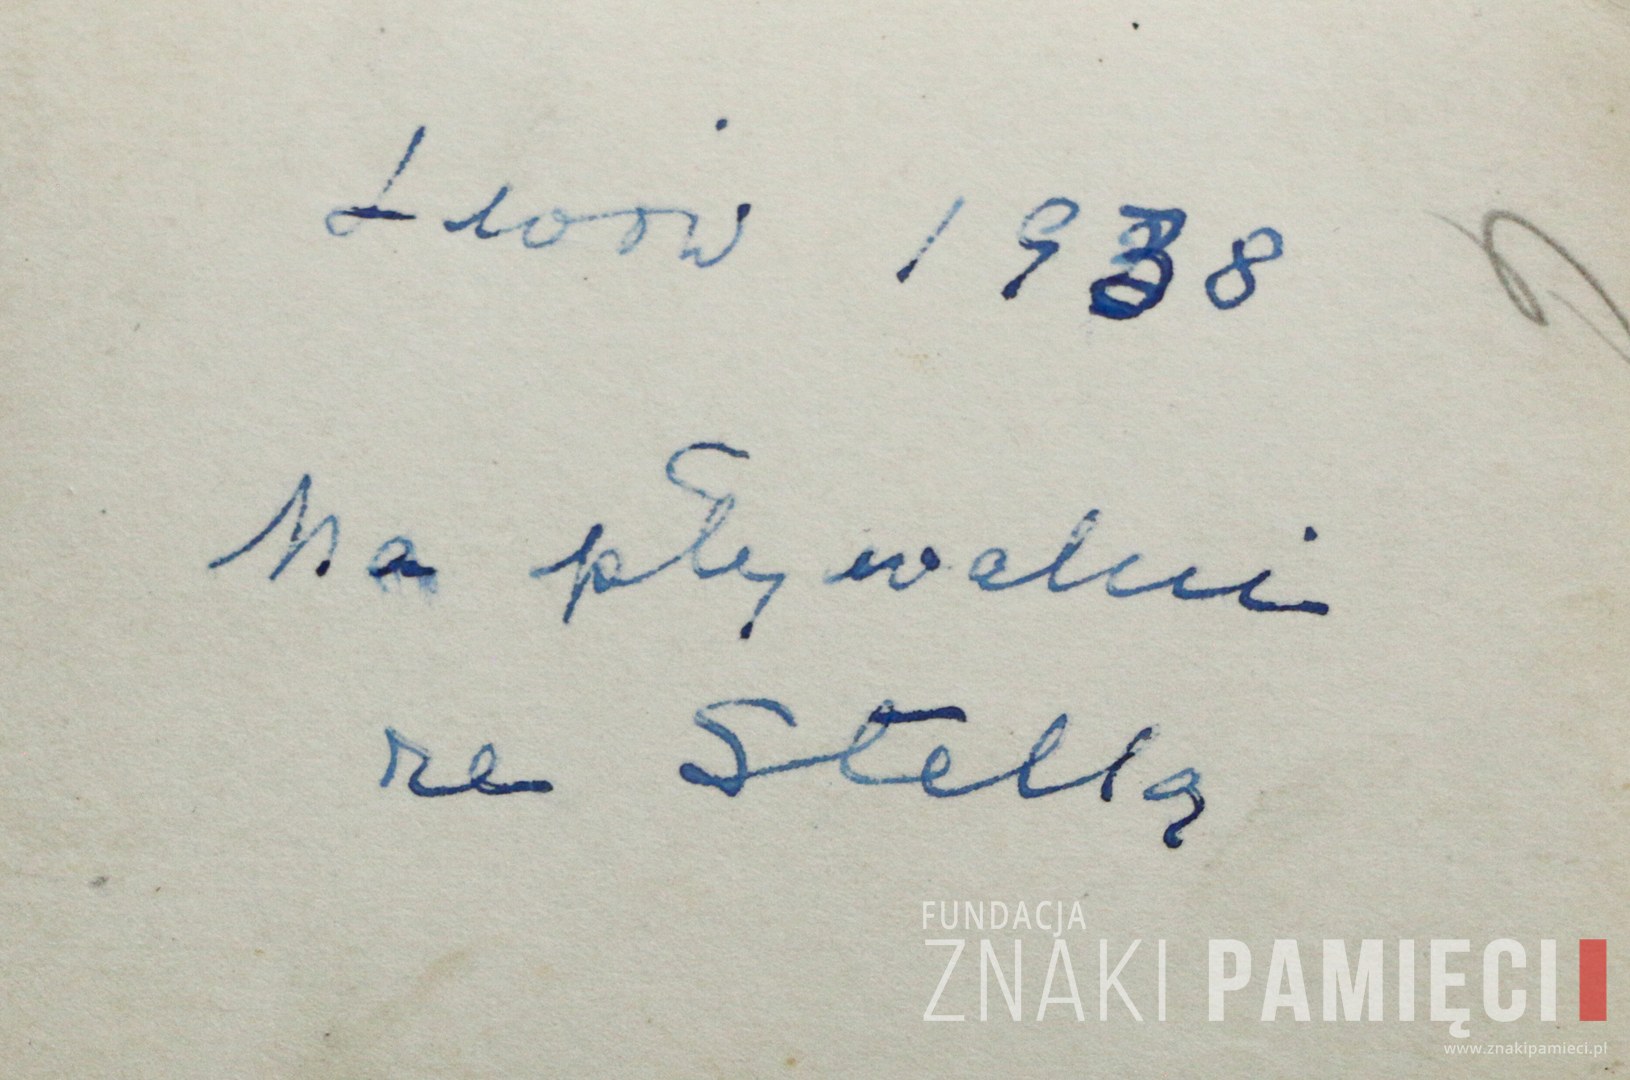 Lwów 1938
Na pływalni
ze Stellą
FUNDACJA
ZNAKI PAMIĘCI
www.znakipamieci.pl